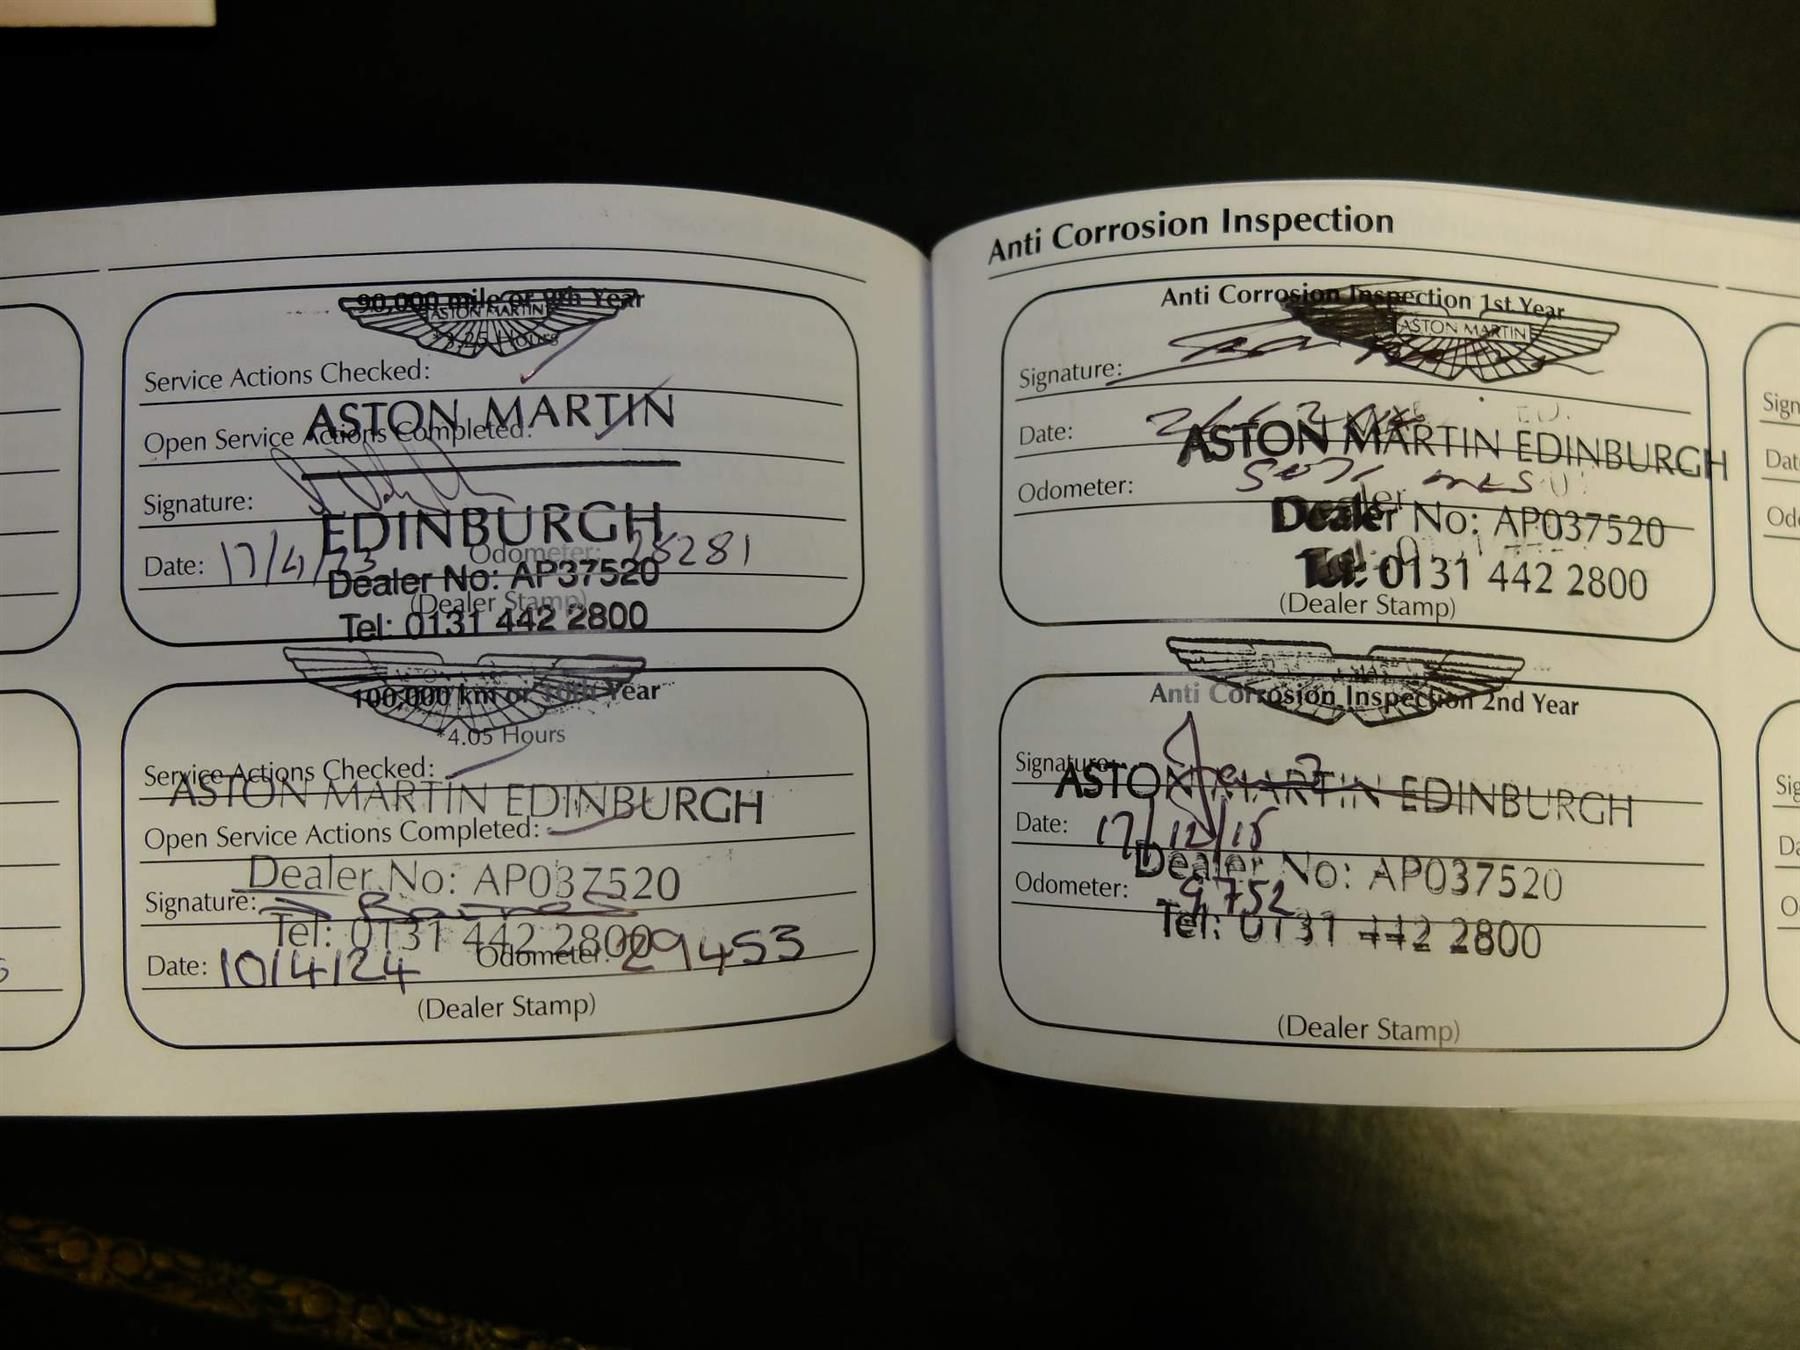 90,000 mile or 9th Year
ASTON MARTIN
*3.25 Hours
Service Actions Checked:
ASTON MARTIN
Open Service Actions Completed:
Signature:
EDINBURGH
Date: 17/4/23 Odometer: 28281
Dealer No: AP37520
(Dealer Stamp)
Tel: 0131 442 2800
100,000 km or 10th Year
*4.05 Hours
Service Actions Checked:
ASTON MARTIN EDINBURGH
Open Service Actions Completed:
Dealer No: AP037520
Signature:
Tel: 0131 442 2800
Date: 10/4/24 Odometer: 29453
(Dealer Stamp)
Anti Corrosion Inspection
Anti Corrosion Inspection 1st Year
ASTON MARTIN
Signature:
Date:
ASTON MARTIN EDINBURGH
Odometer:
Dealer No: AP037520
Tel: 0131 442 2800
(Dealer Stamp)
Anti Corrosion Inspection 2nd Year
Signature:
ASTON MARTIN EDINBURGH
Date: 17/12/15
Dealer No: AP037520
Odometer: 9752
Tel: 0131 442 2800
(Dealer Stamp)
Sign
Date
Odo
Sig
Da
O